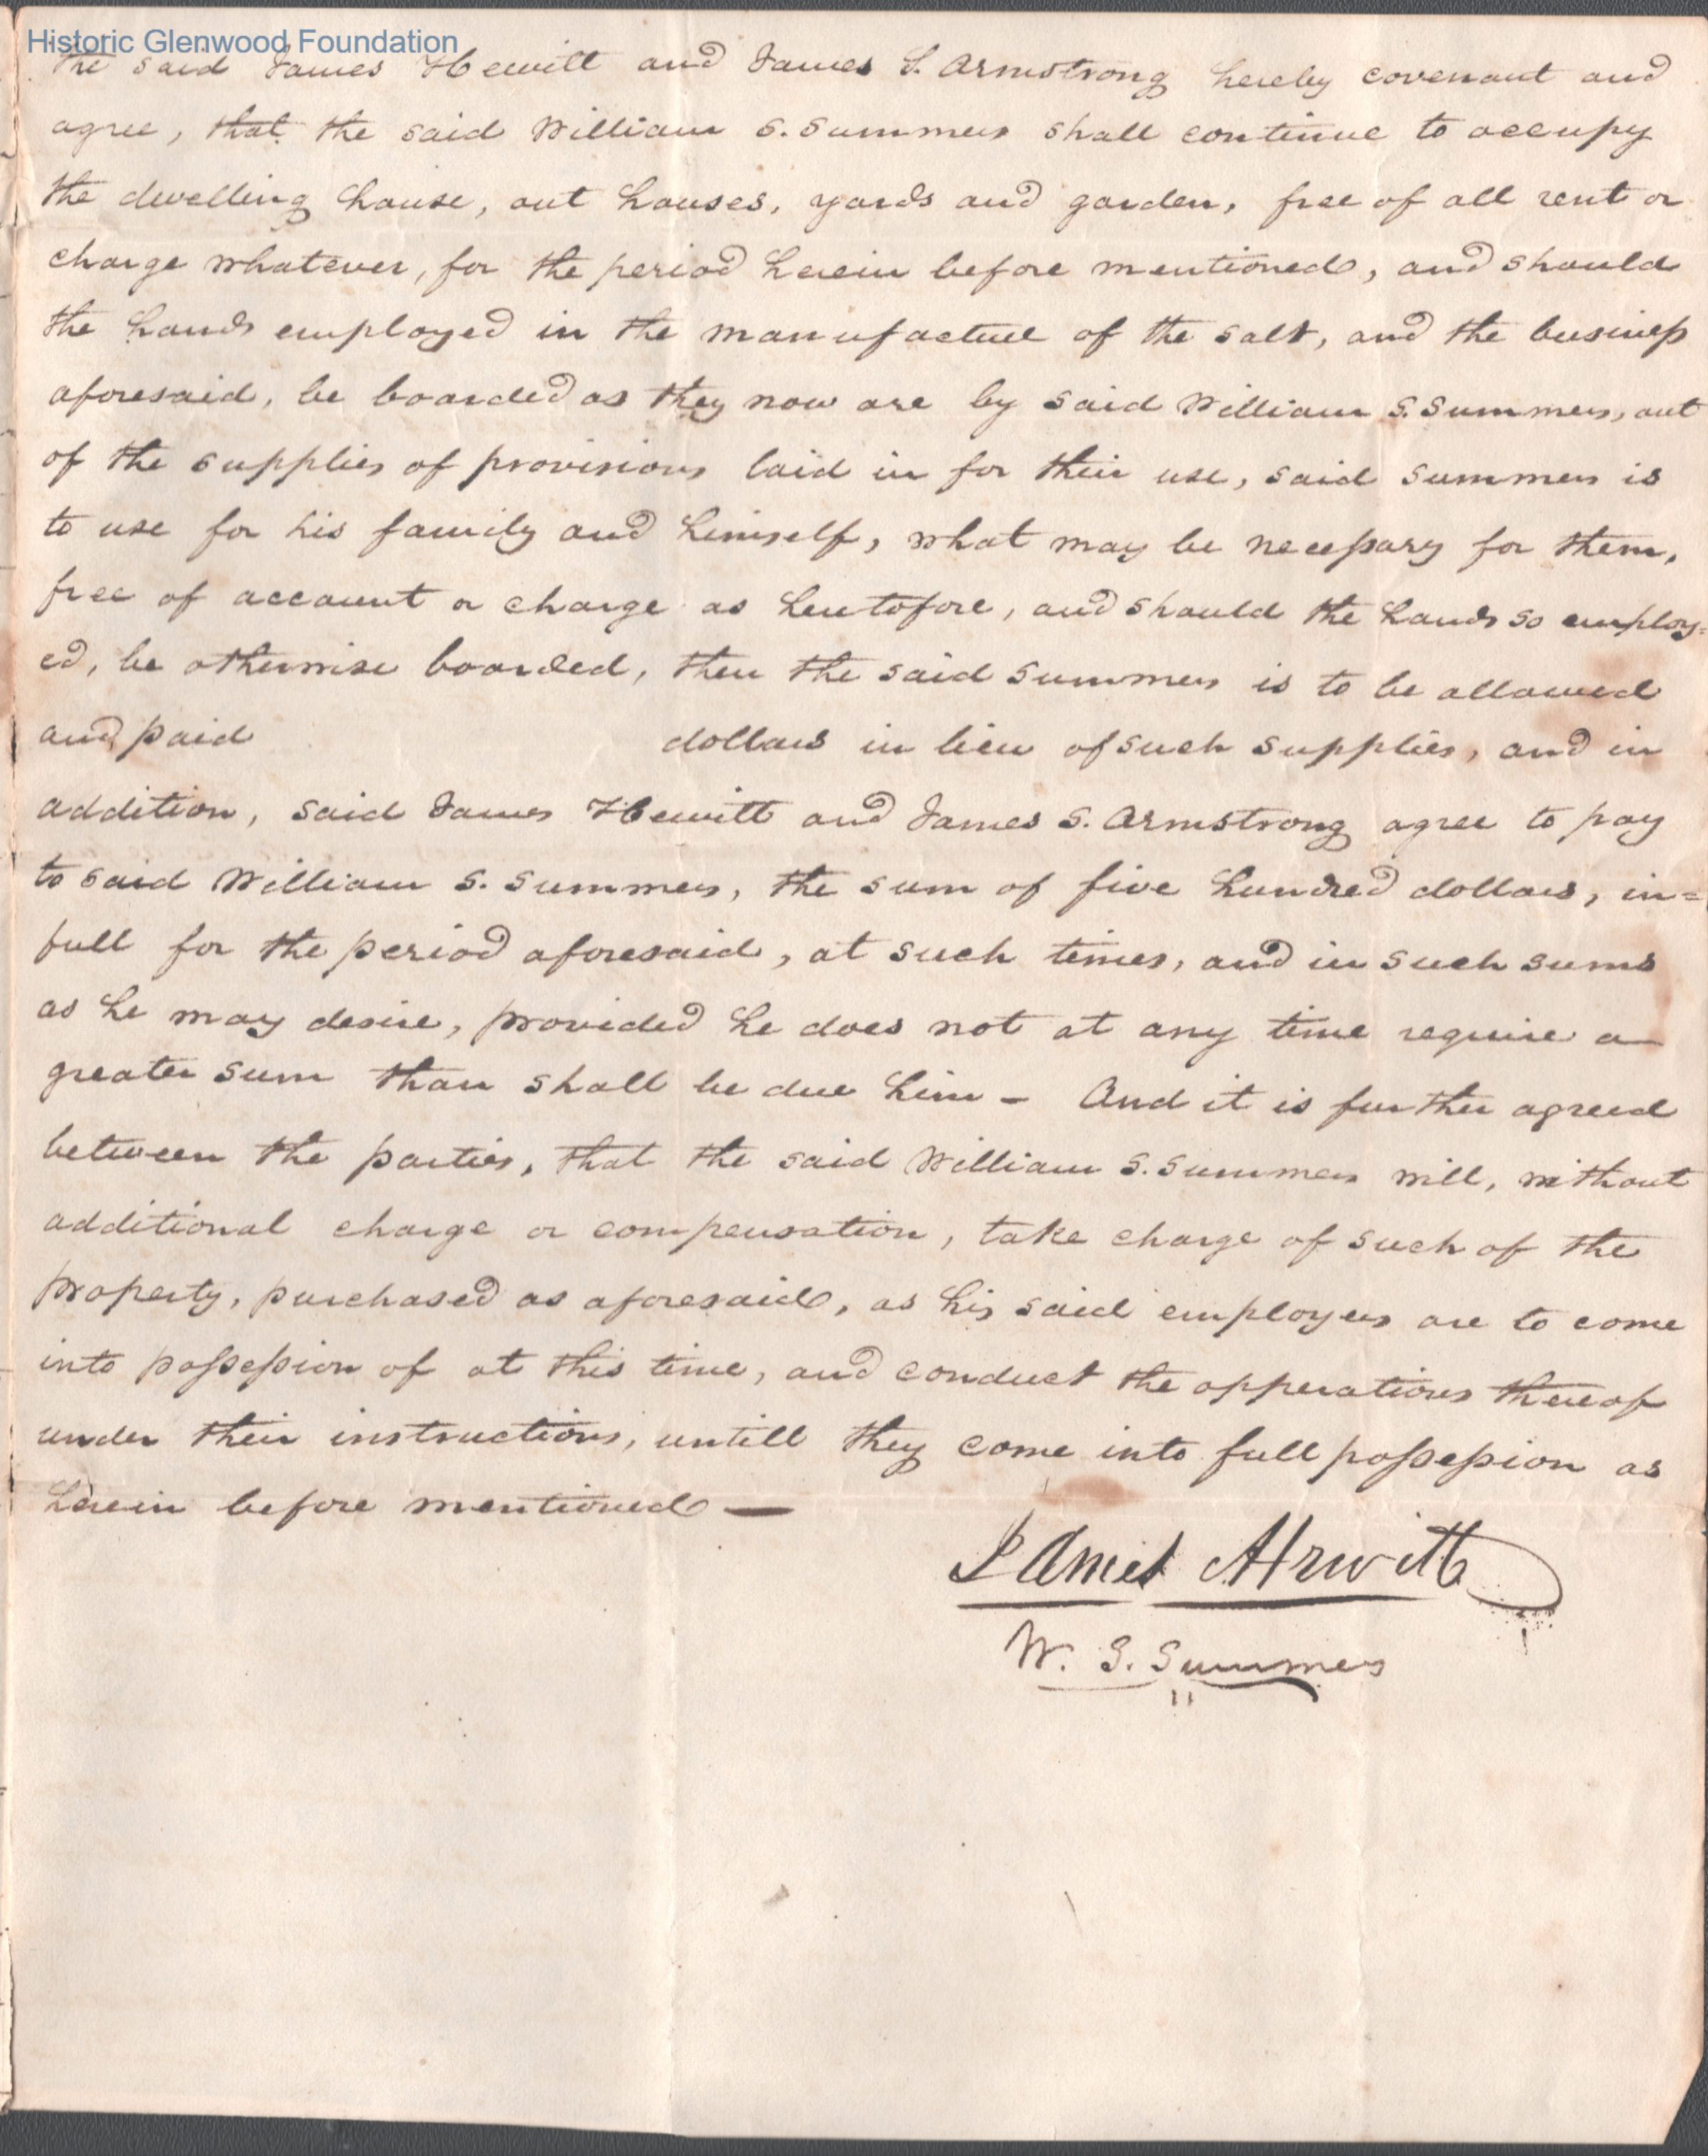 Historic Glenwood Foundation
the said James Hewitt and James S. Armstrong hereby covenant and
agree, that the said William S. Summers shall continue to occupy
the dwelling house, out houses, yards and garden, free of all rent or
charge whatever, for the period herein before mentioned, and should
the hands employed in the manufacture of the salt, and the business
aforesaid, be boarded as they now are by said William S. Summers, out
of the supplies of provisions laid in for their use, said Summers is
to use for his family and himself, what may be necessary for them,
free of account or charge as heretofore, and should the hands so employ=
ed, be otherwise boarded, then the said Summers is to be allowed
and paid dollars in lieu of such supplies, and in
addition, said James Hewitt and James S. Armstrong agree to pay
to said William S. Summers, the sum of five hundred dollars, in=
full for the period aforesaid, at such times, and in such sums
as he may desire, provided he does not at any time require a
greater sum than shall be due him - And it is further agreed
between the parties, that the said William S. Summers will, without
additional charge or compensation, take charge of such of the
property, purchased as aforesaid, as his said employers are to come
into possession of at this time, and conduct the opperations thereof
under their instructions, untill they come into full possession as
herein before mentioned —
James Hewitt
W. S. Summers